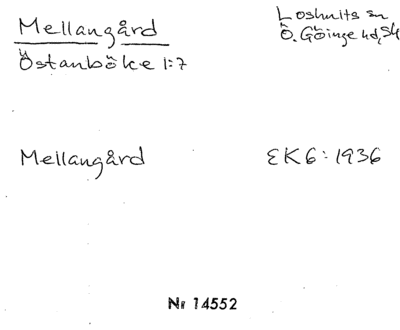 Mellangård
Östanböke 1:7
Loshults sn
Ö. Göinge hd, Sk
Mellangård
EK6: 1936
Nr 14552